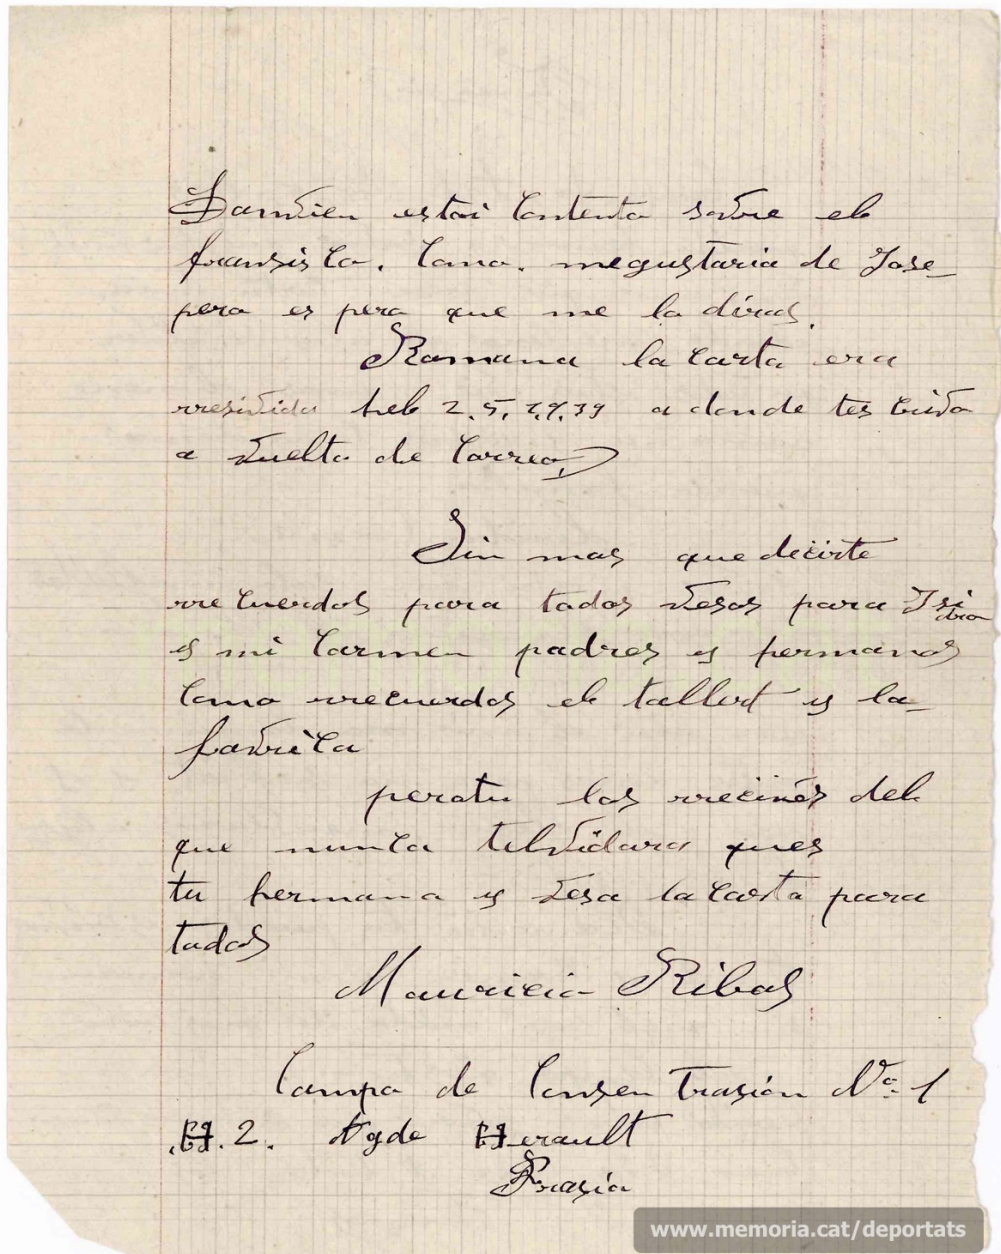 Danvien estoi contento sovre el
fransisco. Como. megustaria de Jose
pero es pero que me lo diras.
Romana la carta era
rresivida hel 2.5.7.9.39 a donde tes crivo
a vuelta de correo,
Sin mas que decirte
rrecuerdos para todos vesos para Isi
dro
y mi Carmen padres y hermanos
Como rrecuerdos el tallert y la
favrica
peratu los rrecives del
que nunca telvidara ques
tu hermano y vesa la carta para
todos
Mauricio Ribas
Campo de Consentrasion Nº 1
H.2. Agde Herault
Frasia
www.memoria.cat/deportats